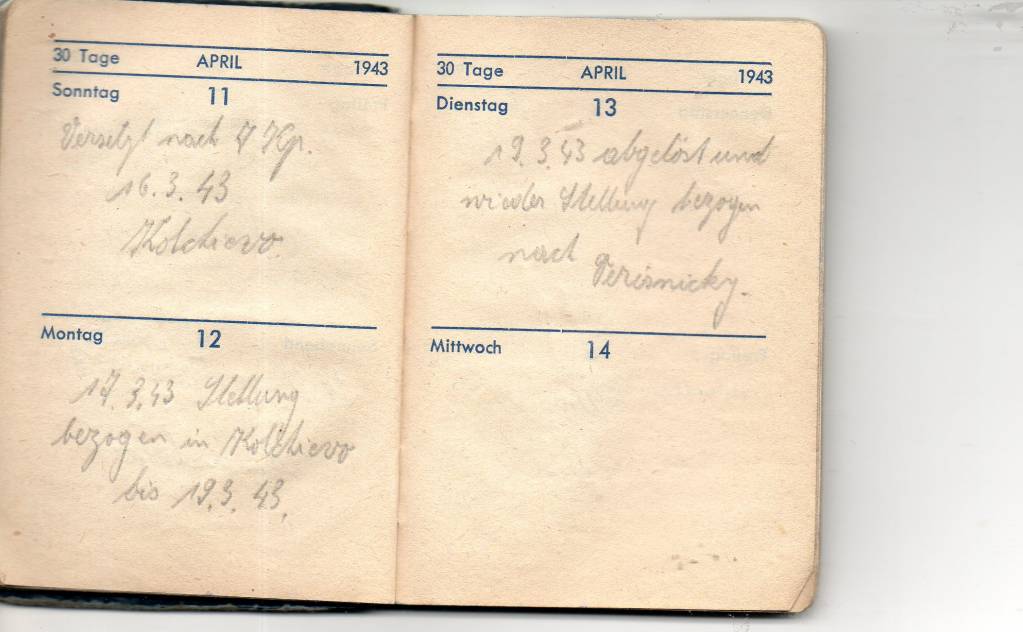 30 Tage APRIL 1943
Sonntag 11
Versetzt nach 7 Kp.
16. 3. 43
Kolchievo
Montag 12
17. 3. 43 Stellung
bezogen in Kolchievo
bis 19. 3. 43.
30 Tage APRIL 1943
Dienstag 13
19. 3. 43 abgelöst und
wieder Stellung bezogen
nach Verisnicky.
Mittwoch 14